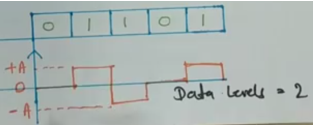 0 1 1 0 1
+A
0
-A
Data levels = 2